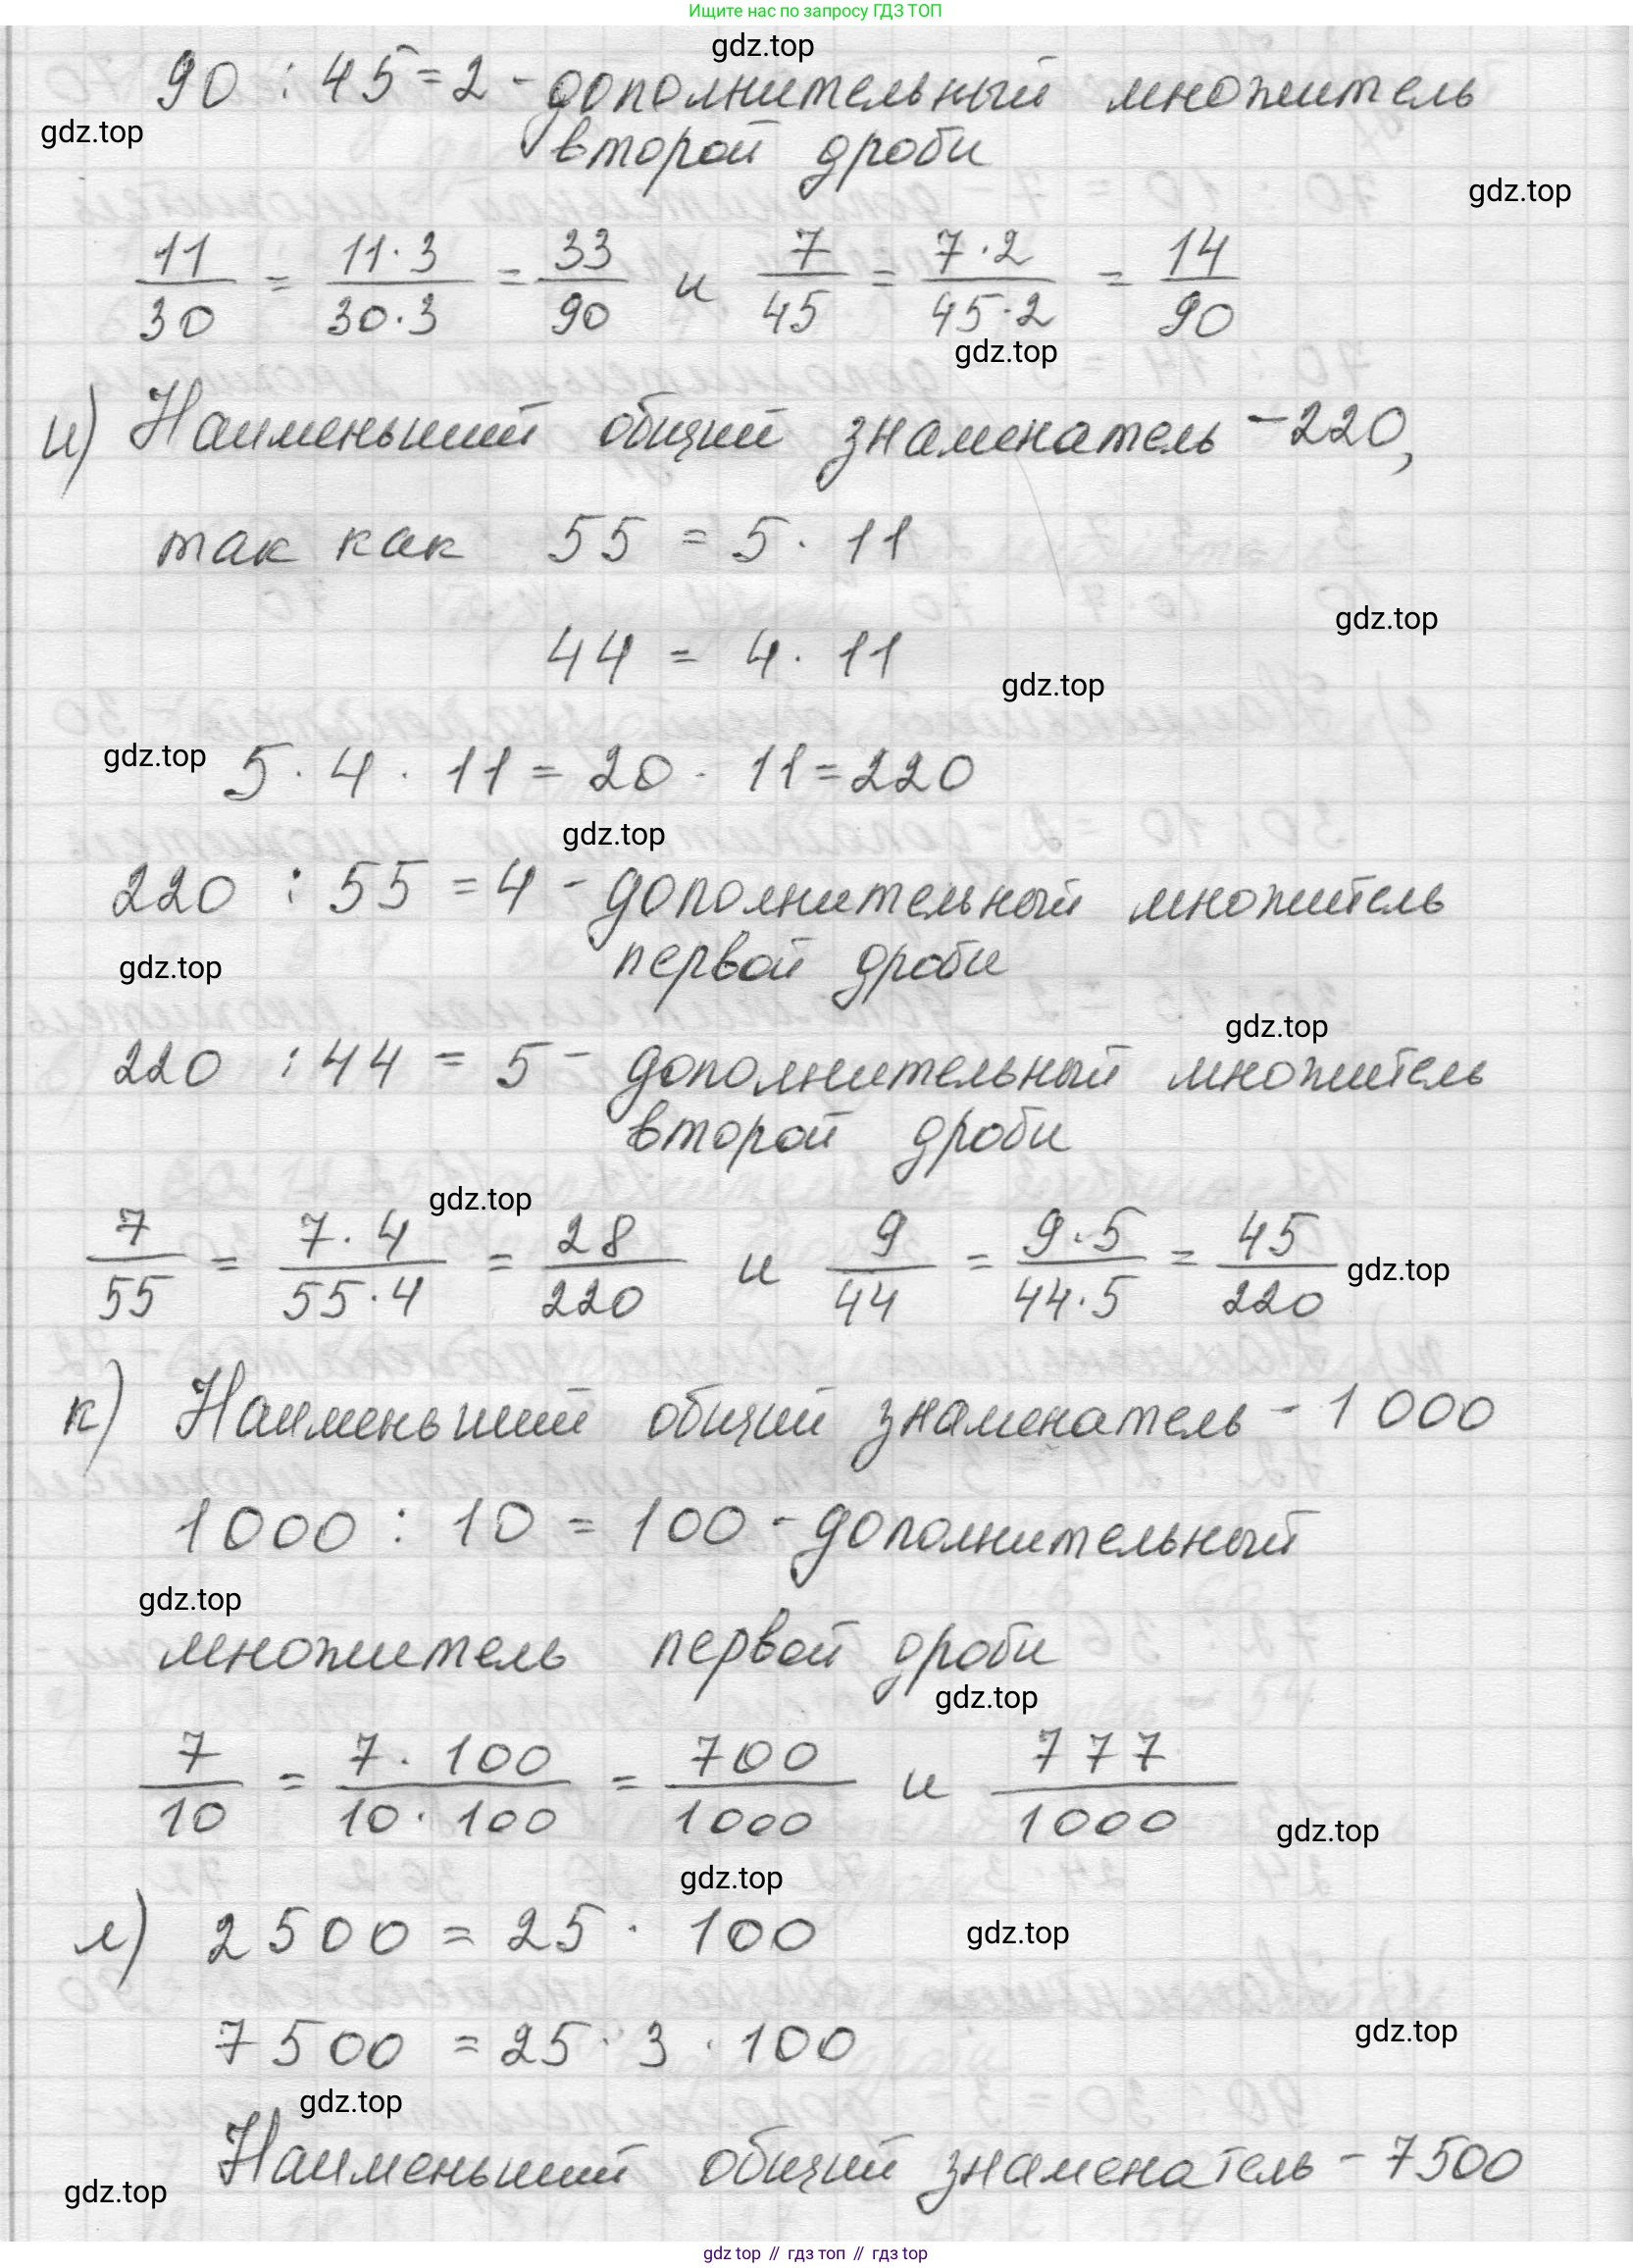 Ищите нас по запросу ГДЗ ТОП
gdz.top
90 : 45 = 2 - дополнительный множитель
gdz.top
второй дроби
gdz.top
11/30 = 11·3/30·3 = 33/90 и 7/45 = 7·2/45·2 = 14/90
gdz.top
и) Наименьший общий знаменатель - 220,
так как 55 = 5 · 11
gdz.top
44 = 4 · 11
gdz.top
gdz.top
5 · 4 · 11 = 20 · 11 = 220
gdz.top
220 : 55 = 4 - дополнительный множитель
первой дроби
gdz.top
gdz.top
220 : 44 = 5 - дополнительный множитель
второй дроби
gdz.top
7/55 = 7·4/55·4 = 28/220 и 9/44 = 9·5/44·5 = 45/220
gdz.top
к) Наименьший общий знаменатель - 1000
1000 : 10 = 100 - дополнительный
gdz.top
множитель первой дроби
gdz.top
7/10 = 7·100/10·100 = 700/1000 и 777/1000
gdz.top
gdz.top
л) 2500 = 25 · 100
gdz.top
7500 = 25 · 3 · 100
gdz.top
gdz.top
Наименьший общий знаменатель - 7500
gdz.top
gdz top // гдз топ // гдз top